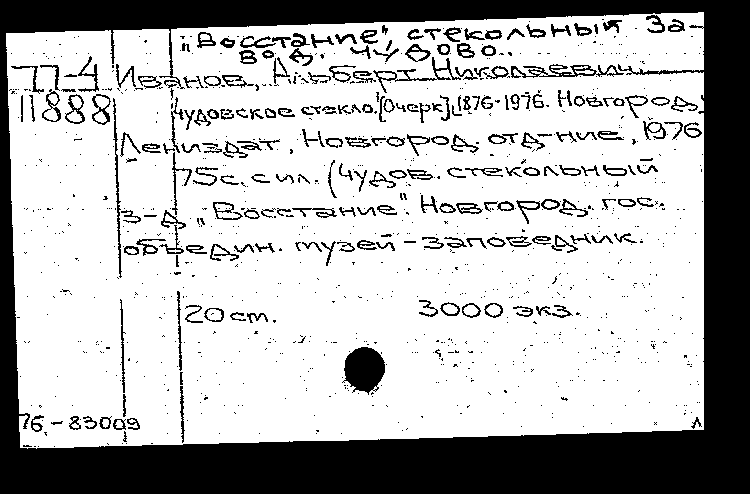 „Восстание", стекольный за-
вод. Чудово.
П-4 Иванов, Альберт Николаевич.
11888 Чудовское стекло. [Очерк]. 1876-1976. Новгород,
Лениздат, Новгород. отд-ние, 1976
75с. с ил. (Чудов. стекольный
з-д „Восстание". Новгород. гос.
объедин. музей-заповедник.
20 см. 3000 экз.
76-83009
л